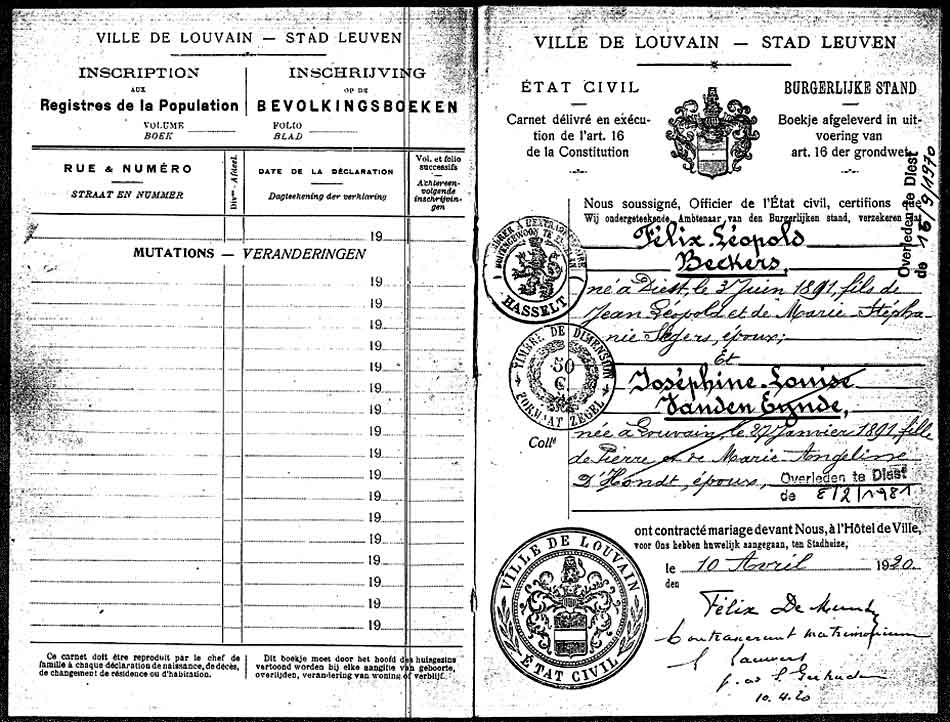 VILLE DE LOUVAIN — STAD LEUVEN
INSCRIPTION
AUX
Registres de la Population
VOLUME
BOEK
INSCHRIJVING
OP DE
BEVOLKINGSBOEKEN
FOLIO
BLAD
RUE & NUMÉRO
STRAAT EN NUMMER
DATE DE LA DÉCLARATION
Dagteekening der verklaring
Vol. et folio
successifs
Achtereen-
volgende
inschrijvin-
gen
19
MUTATIONS — VERANDERINGEN
19
19
19
19
19
19
19
19
19
19
19
19
19
19
19
19
19
Ce carnet doit être reproduit par le chef de
famille à chaque déclaration de naissance, de décès,
de changement de résidence ou d'habitation.
Dit boekje moet door het hoofd des huisgezins
vertoond worden bij elke aangifte van geboorte,
overlijden, verandering van woning of verblijf.
VILLE DE LOUVAIN — STAD LEUVEN
ÉTAT CIVIL
Carnet délivré en exécu-
tion de l'art. 16
de la Constitution
BURGERLIJKE STAND
Boekje afgeleverd in uit-
voering van
art. 16 der grondwet.
Nous soussigné, Officier de l'État civil, certifions
Wij ondergeteekende, Ambtenaar van den Burgerlijken stand, verzekeren dat
Overleden te Diest
de 15/9/1970
Félix Léopold
Beckers,
né à Diest, le 3 Juin 1891, fils de
Jean Léopold et de Marie Stépha-
nie Segers, époux;
Et
Joséphine Louise
Vanden Eynde,
née à Louvain, le 27 Janvier 1891, fille
de Pierre et de Marie Angeline
D'Hondt, époux,
Overleden te Diest
de 8/2/1981
HASSELT
TIMBRE DE DIMENSION
50
C
FORMAAT ZEGEL
ont contracté mariage devant Nous, à l'Hôtel de Ville,
voor Ons hebben huwelijk aangegaan, ten Stadheize,
le 10 Avril 1920
den
VILLE DE LOUVAIN
ÉTAT CIVIL
Félix De
Contraxerunt matrimonium
10.4.20